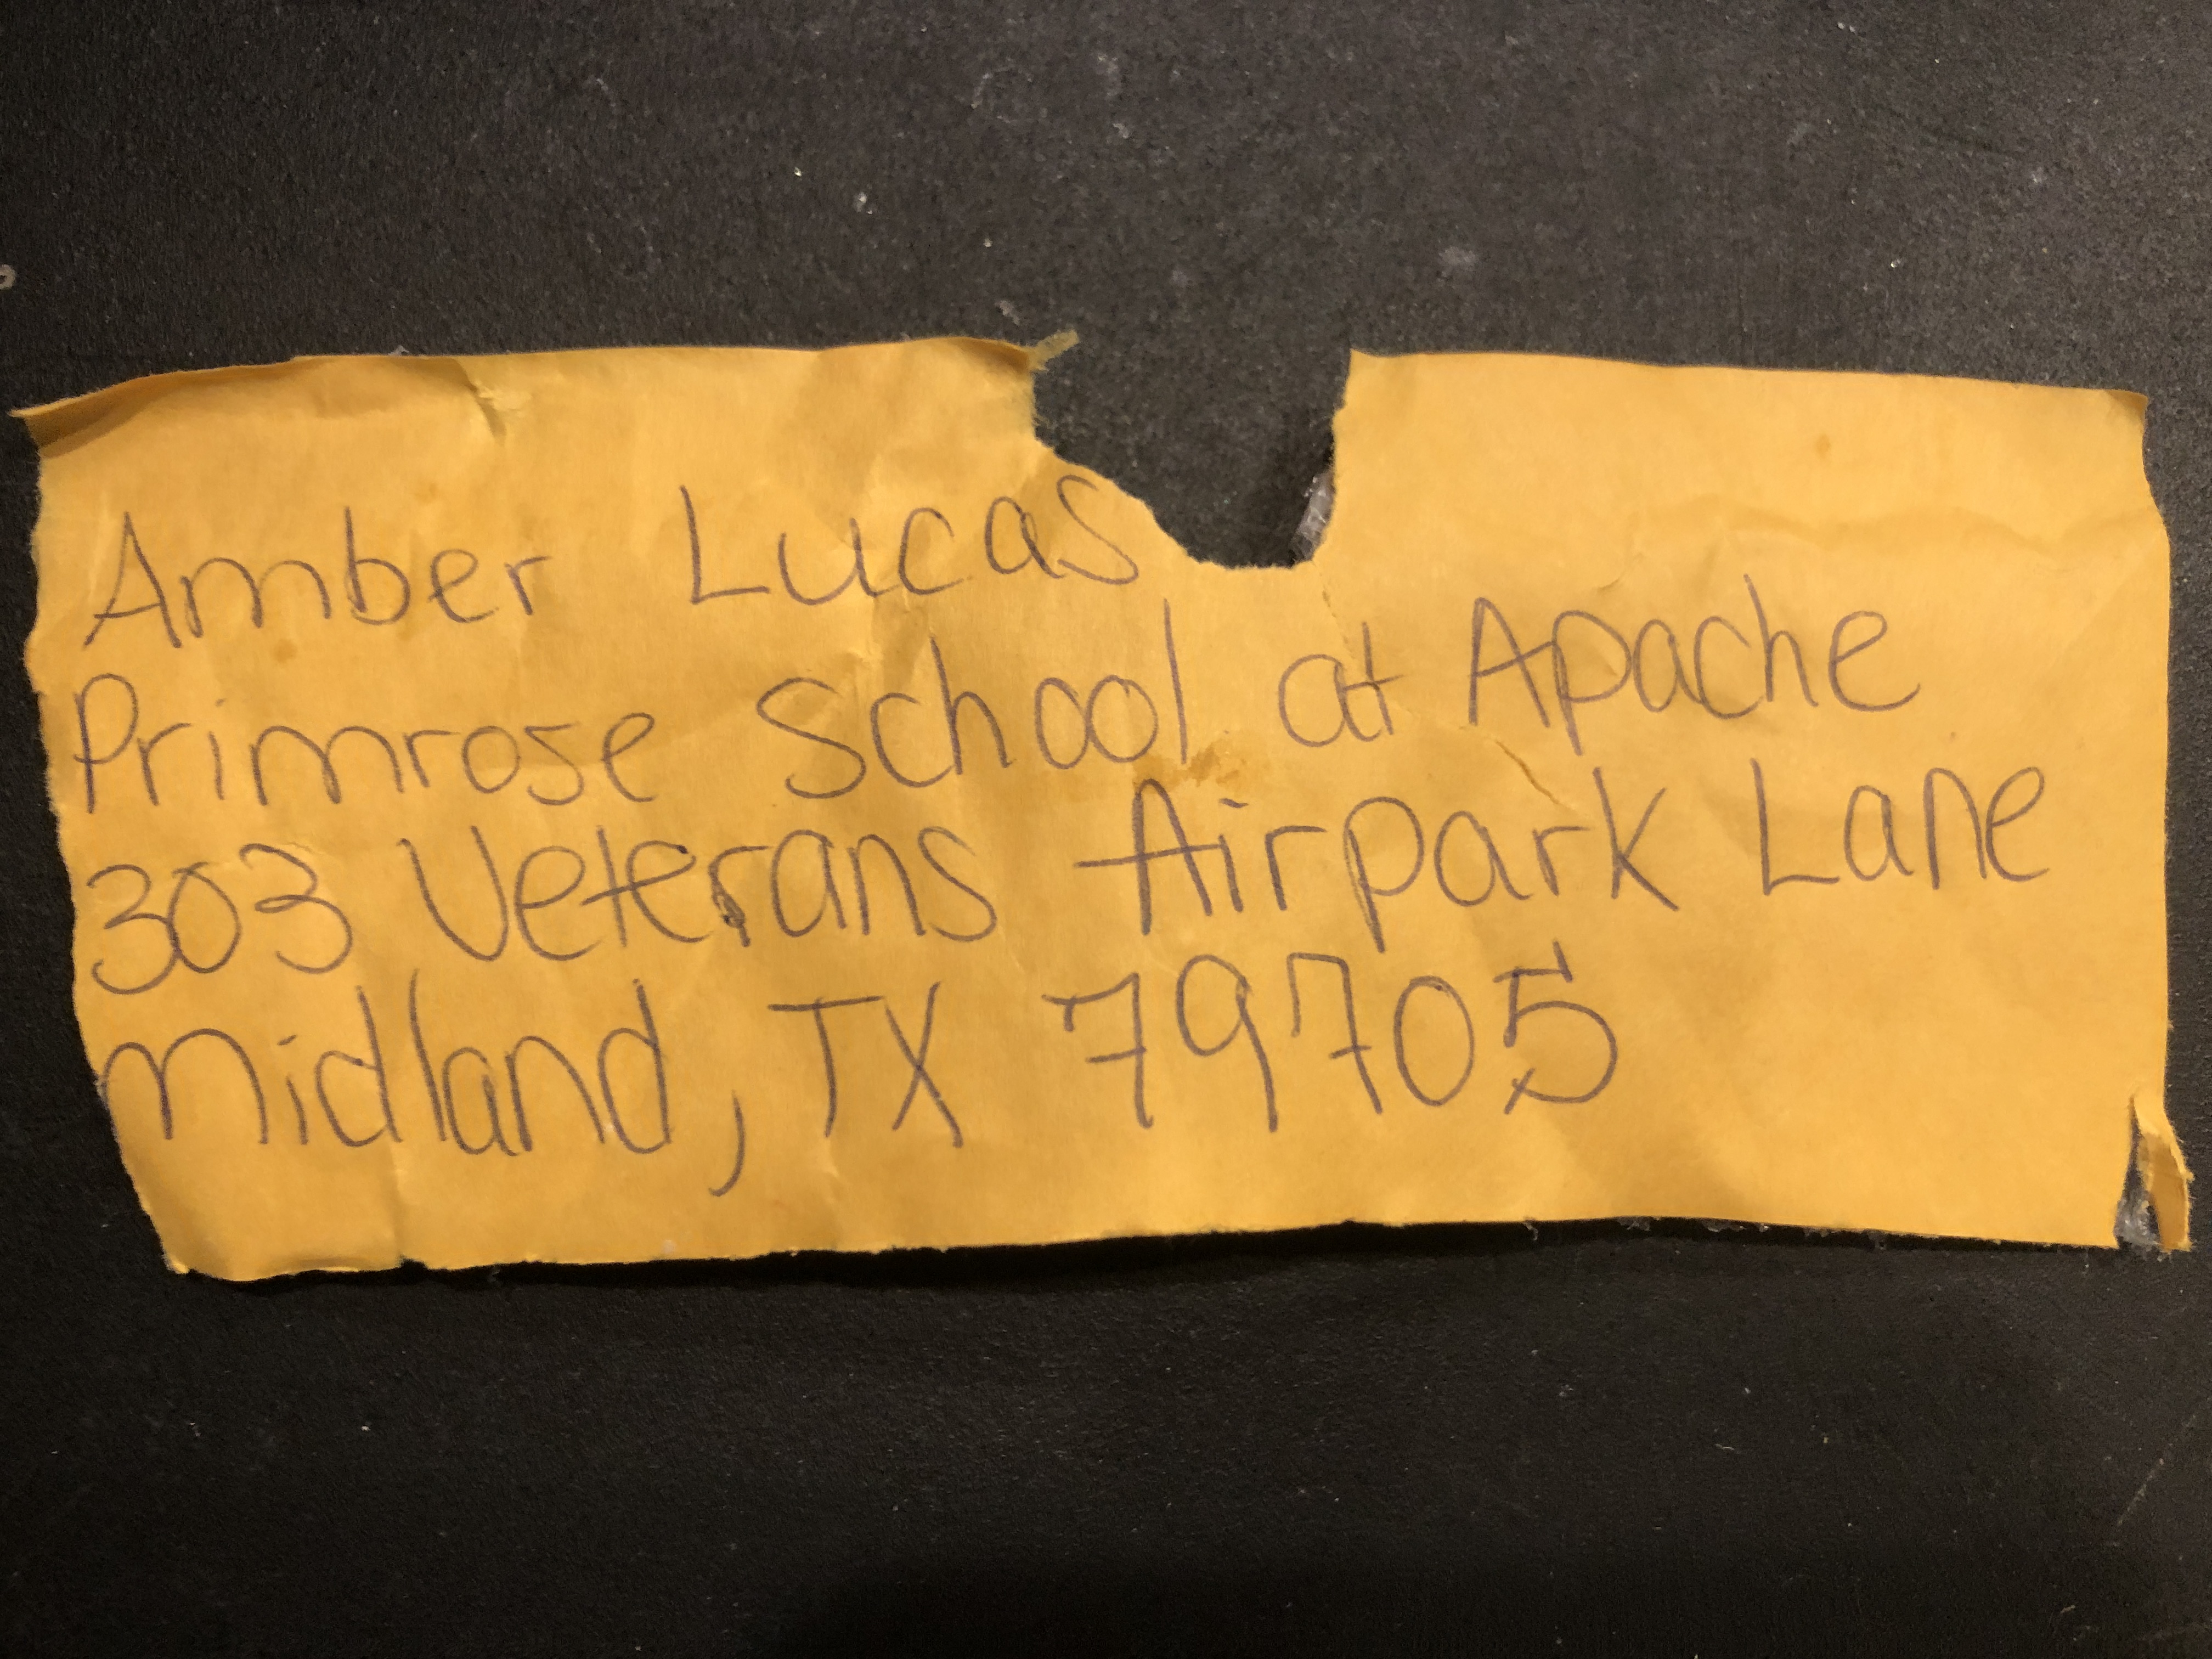 Amber Lucas
Primrose School at Apache
303 Veterans Airpark Lane
Midland, TX 79705